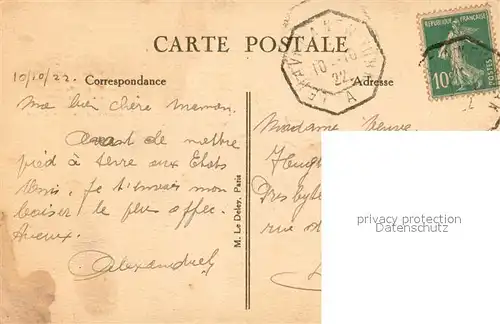 CARTE POSTALE
RÉPUBLIQUE FRANÇAISE
10c
POSTES
10 - 10
22
10/10/22
Correspondance
Adresse
Ma bien chère maman.
Avant de mettre
pied à terre aux Etats
Unis, je t'envoies mon
baiser le plus affec-
tueux.
Madame Veuve
Presbyt
rue d
M. Le Deley, Paris
privacy protection